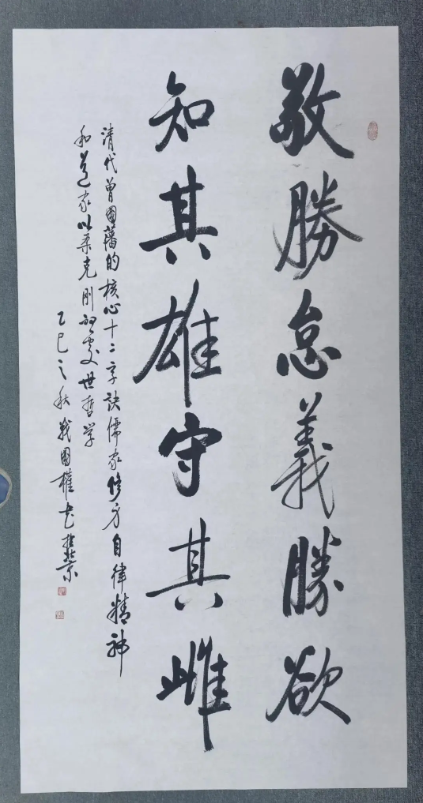 敬勝怠義勝欲
知其雄守其雌
清代曾國藩的核心十二字訣儒家修身自律精神
和道家以柔克剛的處世哲学
乙巳之秋戰國權书於北京